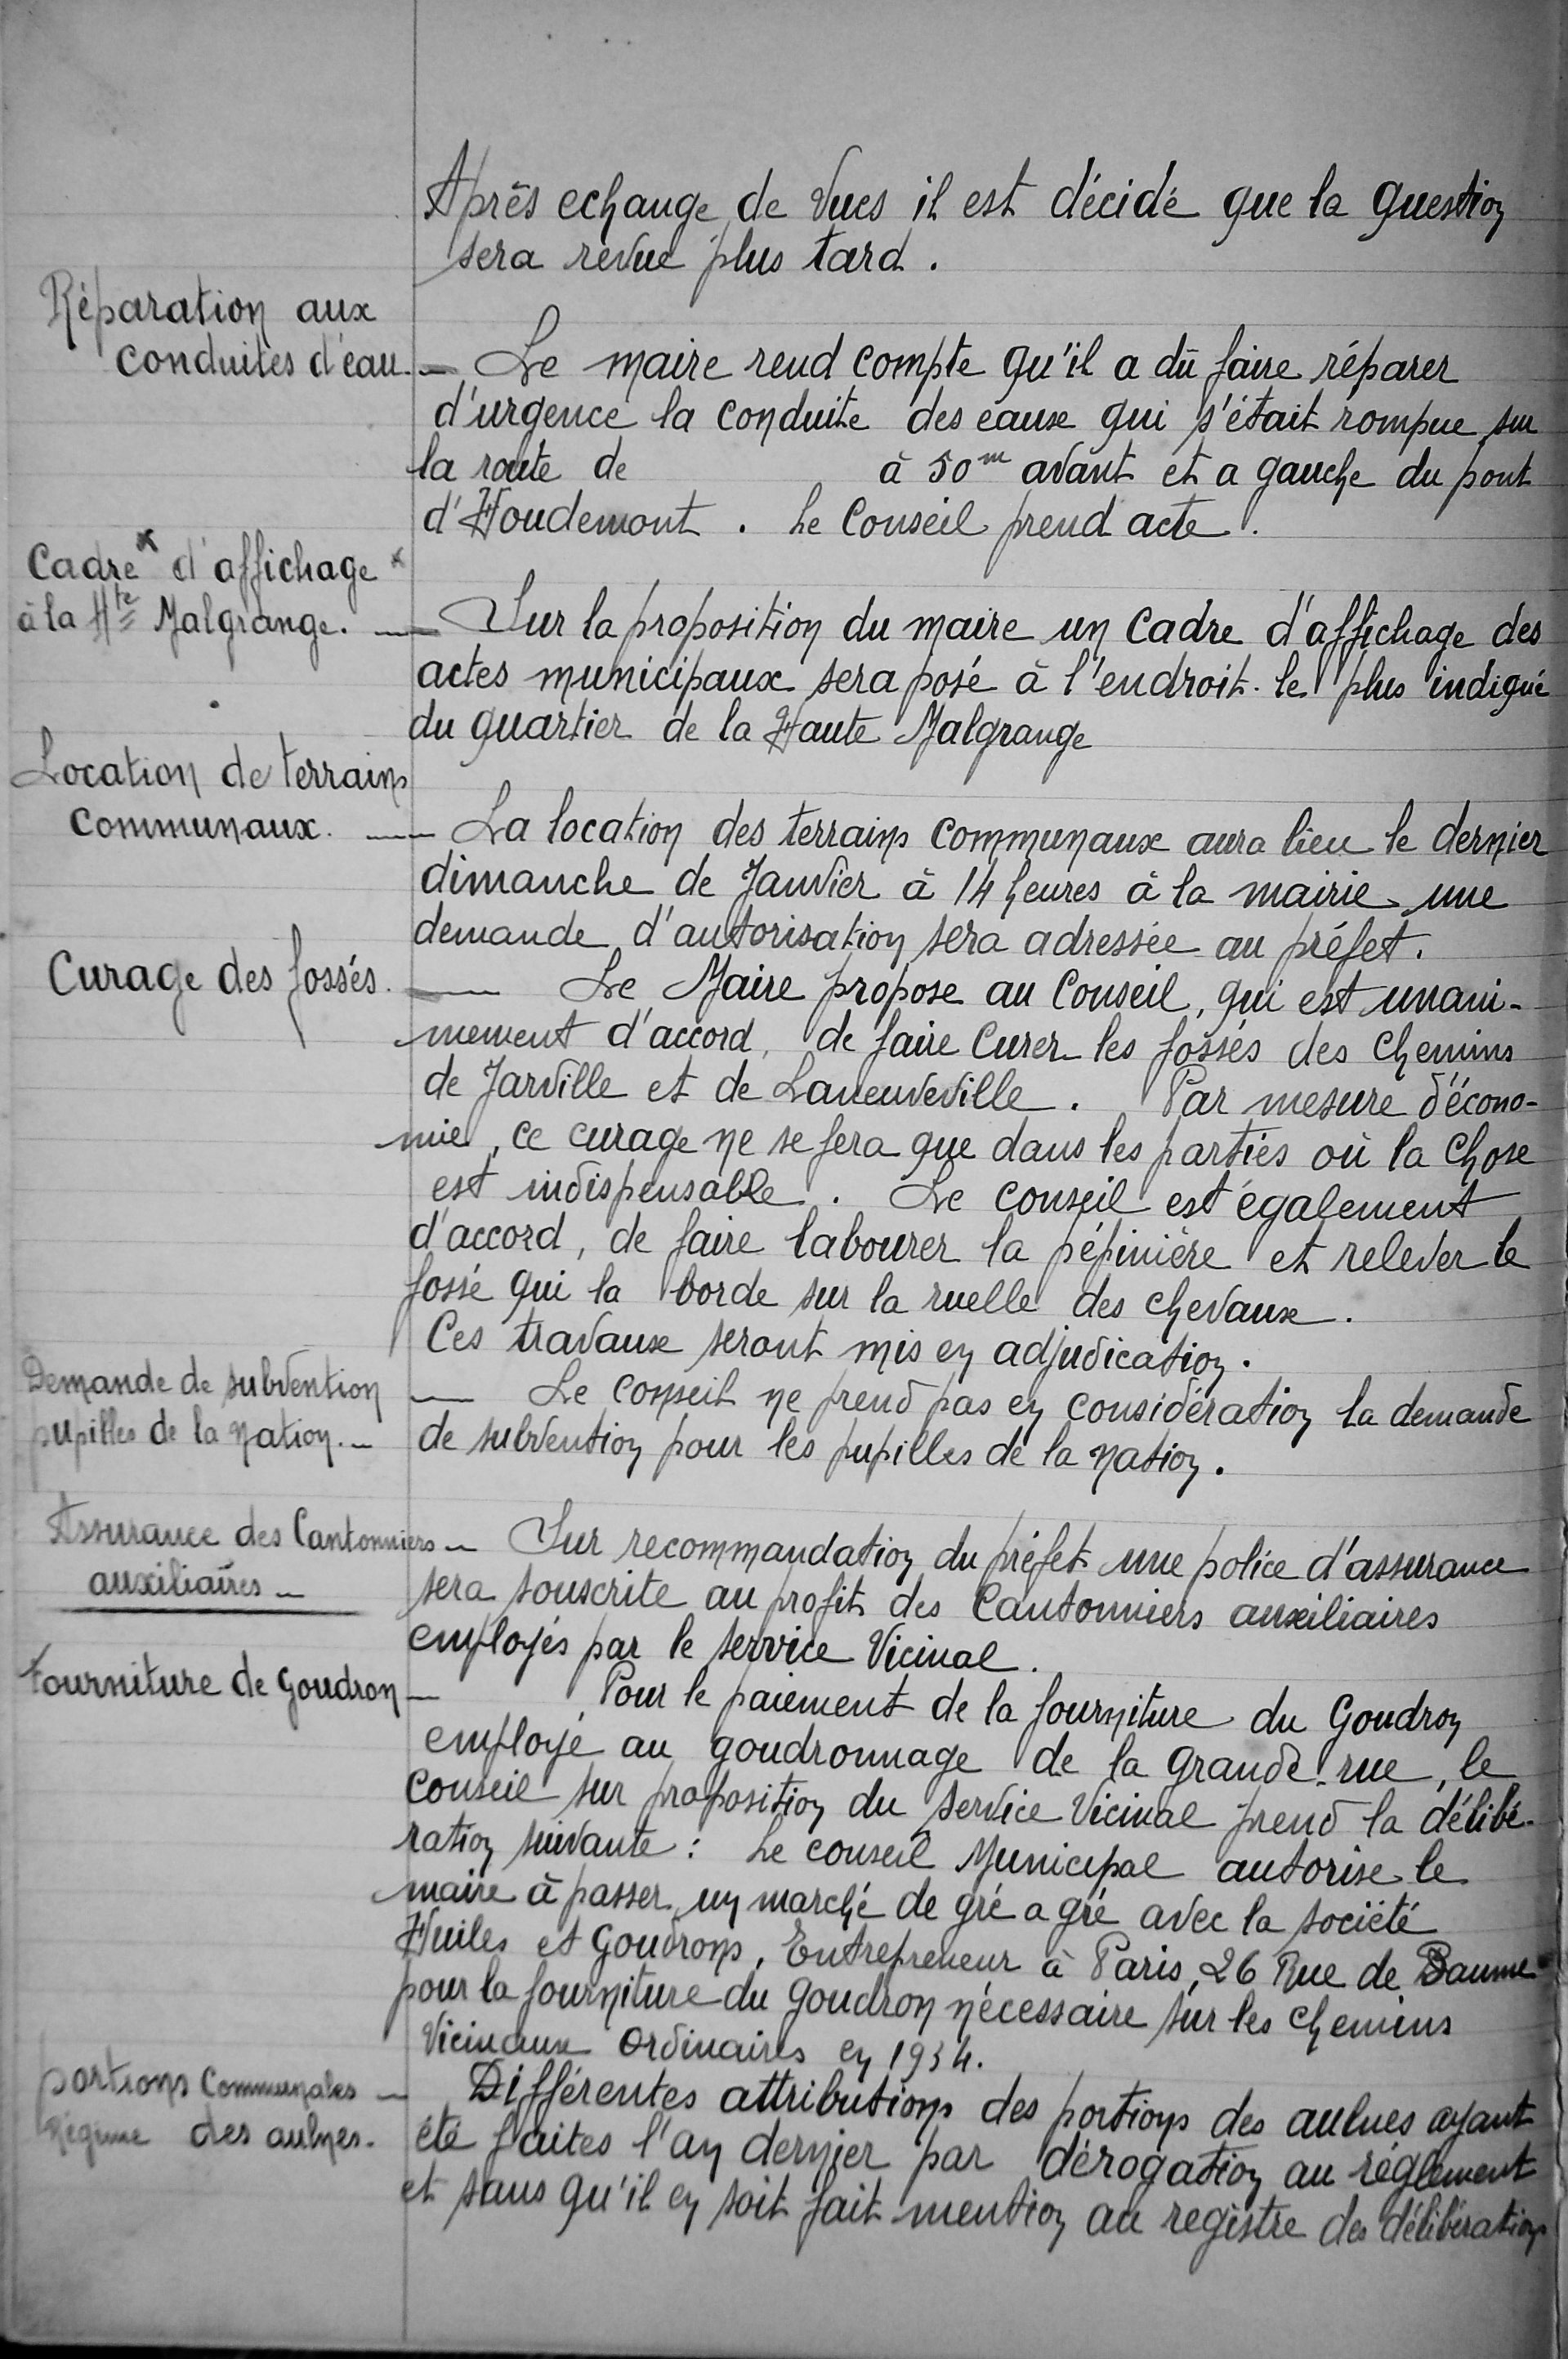 Après echange de Vues il est décidé que la question
sera revue plus tard.
Réparation aux
conduites d'eau. — Le maire rend compte qu'il a dû faire réparer
d'urgence la conduite des eaux qui s'était rompue sur
la route de à 50m avant et a gauche du pont
d'Houdemont. Le Conseil prend acte.
Cadre d'affichage
à la Hte Malgrange. — Sur la proposition du maire un cadre d'affichage des
actes municipaux sera posé à l'endroit le plus indiqué
du quartier de la Haute Malgrange
Location de terrains
communaux. — La location des terrains communaux aura lieu le dernier
dimanche de Janvier à 14 heures à la mairie une
demande d'autorisation sera adressée au préfet.
Curage des fossés. — Le Maire propose au Conseil, qui est unani-
mement d'accord, de faire curer les fossés des chemins
de Jarville et de Laneuveville. Par mesure d'écono-
mie, ce curage ne se fera que dans les parties où la chose
est indispensable. Le conseil est également
d'accord, de faire labourer la pépinière et relever le
fossé qui la borde sur la ruelle des chevaux.
Ces travaux seront mis en adjudication.
Demande de subvention — Le conseil ne prend pas en considération la demande
pupilles de la nation. — de subvention pour les pupilles de la nation.
Assurance des Cantonniers — Sur recommandation du préfet une police d'assurance
auxiliaires — sera souscrite au profit des Cantonniers auxiliaires
employés par le service Vicinal.
Fourniture de Goudron — Pour le paiement de la fourniture du Goudron
employé au goudronnage de la grande-rue, le
conseil sur proposition du service Vicinal prend la délibé-
ration suivante : Le conseil Municipal autorise le
maire à passer un marché de gré a gré avec la société
Huiles et Goudrons, Entrepreneur à Paris, 26 Rue de Baume
pour la fourniture du goudron nécessaire sur les chemins
Vicinaux Ordinaires en 1934.
portions Communales — Différentes attributions des portions des aulnes ayant
Régime des aulnes. été faites l'an dernier par dérogation au règlement
et sans qu'il en soit fait mention au registre des délibérations